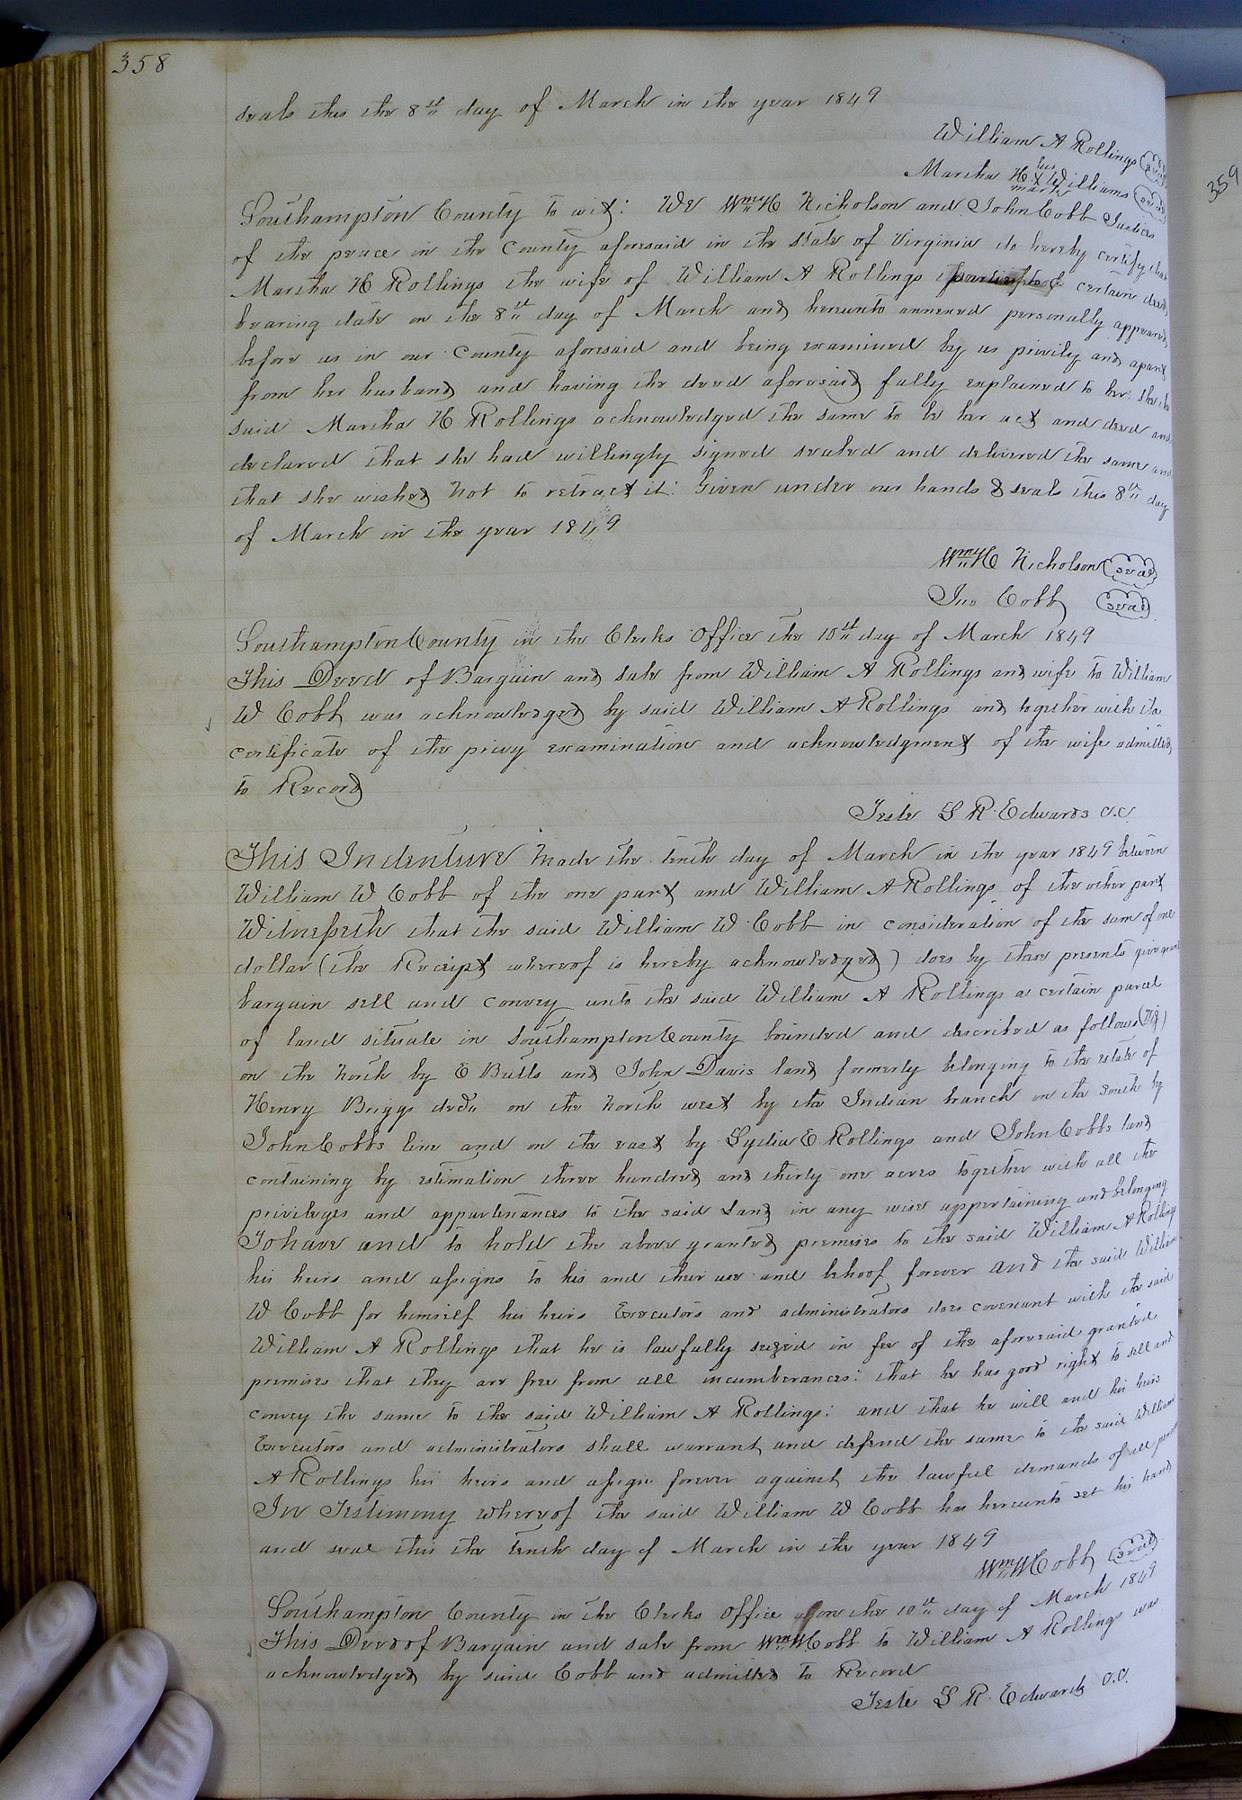 358
seals this the 8th day of March in the year 1849
William A Rollings (seal)
her
Martha H X Williams (seal)
mark
Southampton County to wit: We Wm H Nicholson and John Cobb Justices
of the peace in the County aforesaid in the State of Virginia do hereby certify that
Martha H Rollings the wife of William A Rollings parties to a certain deed
bearing date on the 8th day of March and hereunto annexed personally appeared
before us in our County aforesaid and being examined by us privily and apart
from her husband and having the deed aforesaid fully explained to her she the
said Martha H Rollings acknowledged the same to be her act and deed and
declared that she had willingly signed sealed and delivered the same and
that she wished not to retract it: Given under our hands & seals this 8th day
of March in the year 1849
Wm H Nicholson (seal)
Jno Cobb (seal)
Southampton County in the Clerks Office the 10th day of March 1849
This Deed of Bargain and sale from William A Rollings and wife to William
W Cobb was acknowledged by said William A Rollings and together with the
certificate of the privy examination and acknowledgment of the wife admitted
to Record
Teste L R Edwards C.C.
This Indenture Made the tenth day of March in the year 1849 between
William W Cobb of the one part and William A Rollings of the other part
Witnesseth that the said William W Cobb in consideration of the sum of one
dollar (the Receipt whereof is hereby acknowledged) does by these presents give grant
bargain sell and convey unto the said William A Rollings a certain parcel
of land situate in Southampton County bounded and described as follows (Viz)
on the North by E Butts and John Davis land formerly belonging to the estate of
Henry Briggs decd on the North west by the Indian branch on the South by
John Cobbs line and on the east by Lydia E Rollings and John Cobbs land
containing by estimation three hundred and thirty one acres together with all the
privileges and appurtenances to the said Land in any wise appertaining and belonging
To have and to hold the above granted premises to the said William A Rollings
his heirs and assigns to his and their use and behoof forever And the said William
W Cobb for himself his heirs Executors and administrators does covenant with the said
William A Rollings that he is lawfully seized in fee of the aforesaid granted
premises that they are free from all incumberances: that he has good right to sell and
convey the same to the said William A Rollings: and that he will and his heirs
Executors and administrators shall warrant and defend the same to the said William
A Rollings his heirs and assigns forever against the lawful demands of all persons
In Testimony whereof the said William W Cobb has hereunto set his hand
and seal this the tenth day of March in the year 1849
Wm W Cobb (seal)
Southampton County in the Clerks Office on the 10th day of March 1849
This Deed of Bargain and sale from Wm W Cobb to William A Rollings was
acknowledged by said Cobb and admitted to Record
Teste L R Edwards C.C.
359